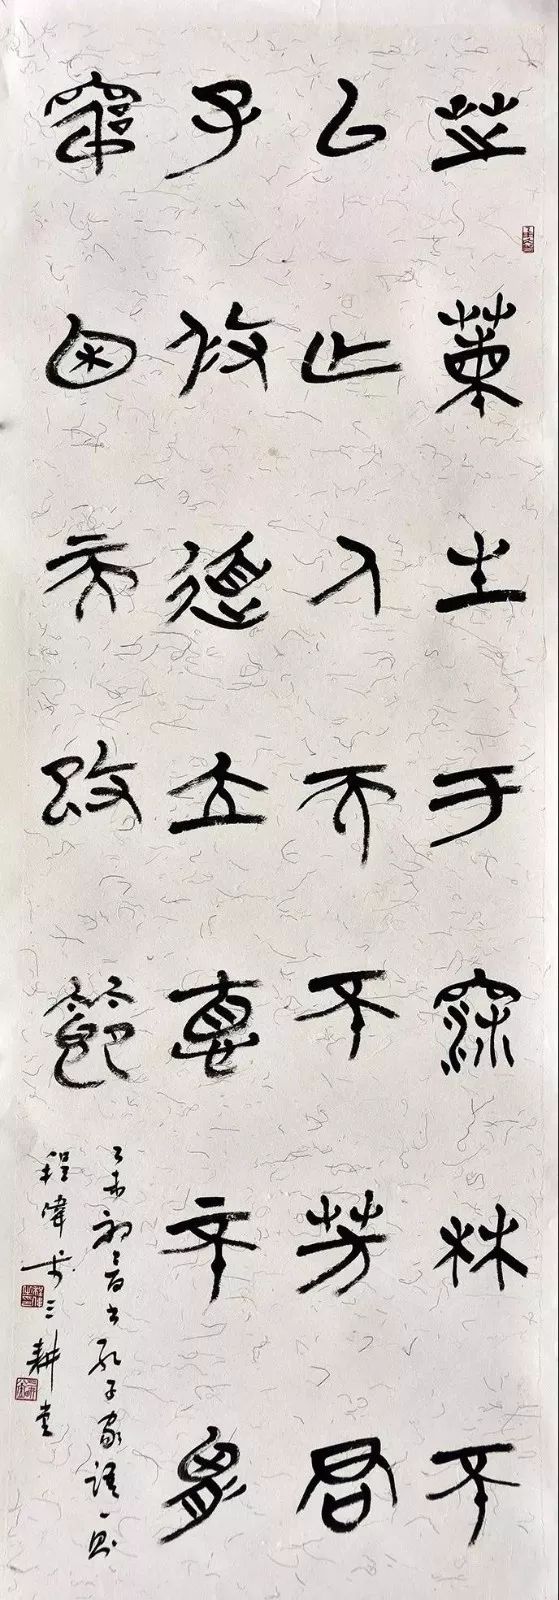 芝蘭生于深林不
以亡人而不芳君
子修道立惪不為
窮困而改節
乙未初春書孔子家語一則
程偉於三耕堂